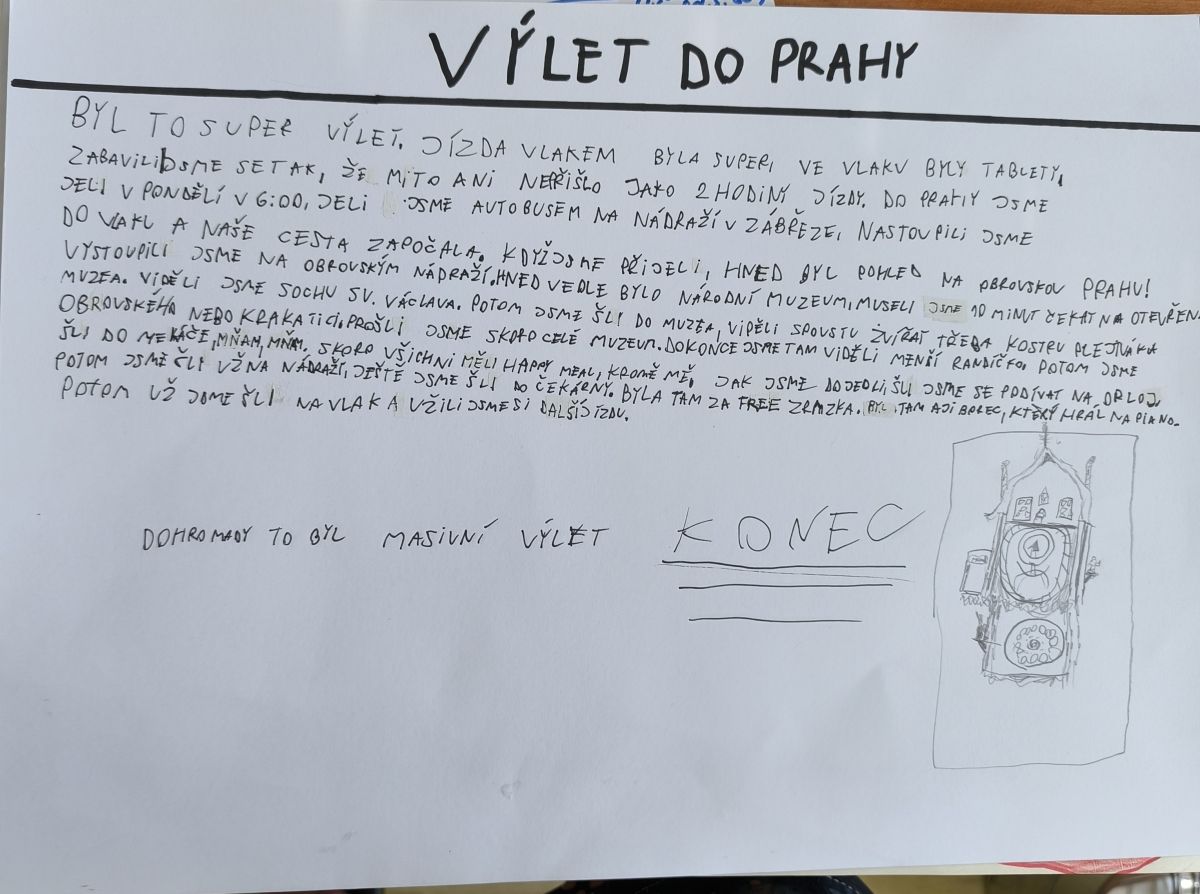 VÝLET DO PRAHY
BYL TO SUPER VÝLET. JÍZDA VLAKEM BYLA SUPER, VE VLAKU BYLY TABLETY,
ZABAVILI JSME SE TAK, ŽE MI TO ANI NEPŘIŠLO JAKO 2 HODINY JÍZDY. DO PRAHY JSME
JELI V PONDĚLÍ V 6:00, JELI JSME AUTOBUSEM NA NÁDRAŽÍ V ZÁBŘEZE, NASTOUPILI JSME
DO VLAKU A NAŠE CESTA ZAPOČALA. KDYŽ JSME PŘIJELI, HNED BYL POHLED NA OBROVSKOU PRAHU!
VYSTOUPILI JSME NA OBROVSKÝM NÁDRAŽÍ. HNED VEDLE BYLO NÁRODNÍ MUZEUM, MUSELI JSME 10 MINUT ČEKAT NA OTEVŘENÍ
MUZEA. VIDĚLI JSME SOCHU SV. VÁCLAVA. POTOM JSME ŠLI DO MUZEA, VIDĚLI SPOUSTU ZVÍŘAT TŘEBA KOSTRU PLEJTVÁKA
OBROVSKÉHO NEBO KRAKATICI. PROŠLI JSME SKORO CELÉ MUZEUM. DOKONCE JSME TAM VIDĚLI MENŠÍ RANDÍČKO. POTOM JSME
ŠLI DO MEKÁČE, MŇAM, MŇAM. SKORO VŠICHNI MĚLI HAPPY MEAL, KROMĚ MĚ. JAK JSME DOJEDLI, ŠLI JSME SE PODÍVAT NA ORLOJ.
POTOM JSME ČLI UŽ NA NÁDRAŽÍ, JEŠTĚ JSME ŠLI DO ČEKÁRNY. BYLA TAM ZA FREE ZRMZKA. BYL TAM AJI BOREC, KTERÝ HRÁL NA PIANO.
POTOM UŽ JSME ŠLI NA VLAK A UŽILI JSME SI DALŠÍ JÍZDU.
DOHROMADY TO BYL MASIVNÍ VÝLET
KONEC